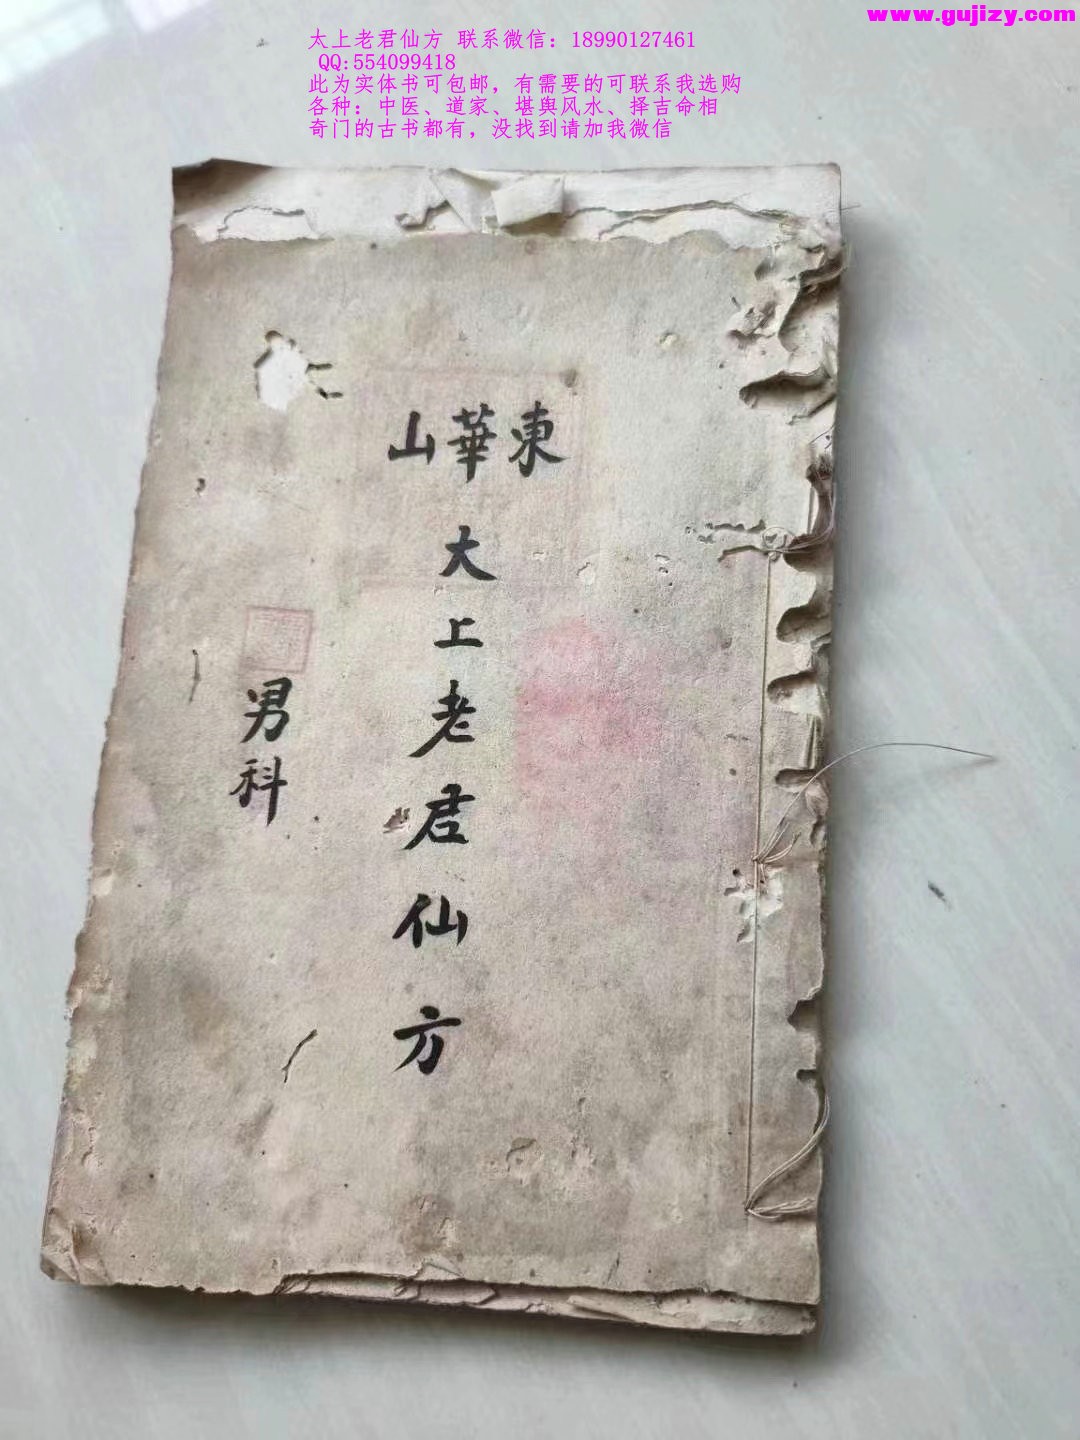 www.gujizy.com
太上老君仙方 联系微信：18990127461
QQ:554099418
此为实体书可包邮，有需要的可联系我选购
各种：中医、道家、堪舆风水、择吉命相
奇门的古书都有，没找到请加我微信
東華山
大上老君仙方
男科